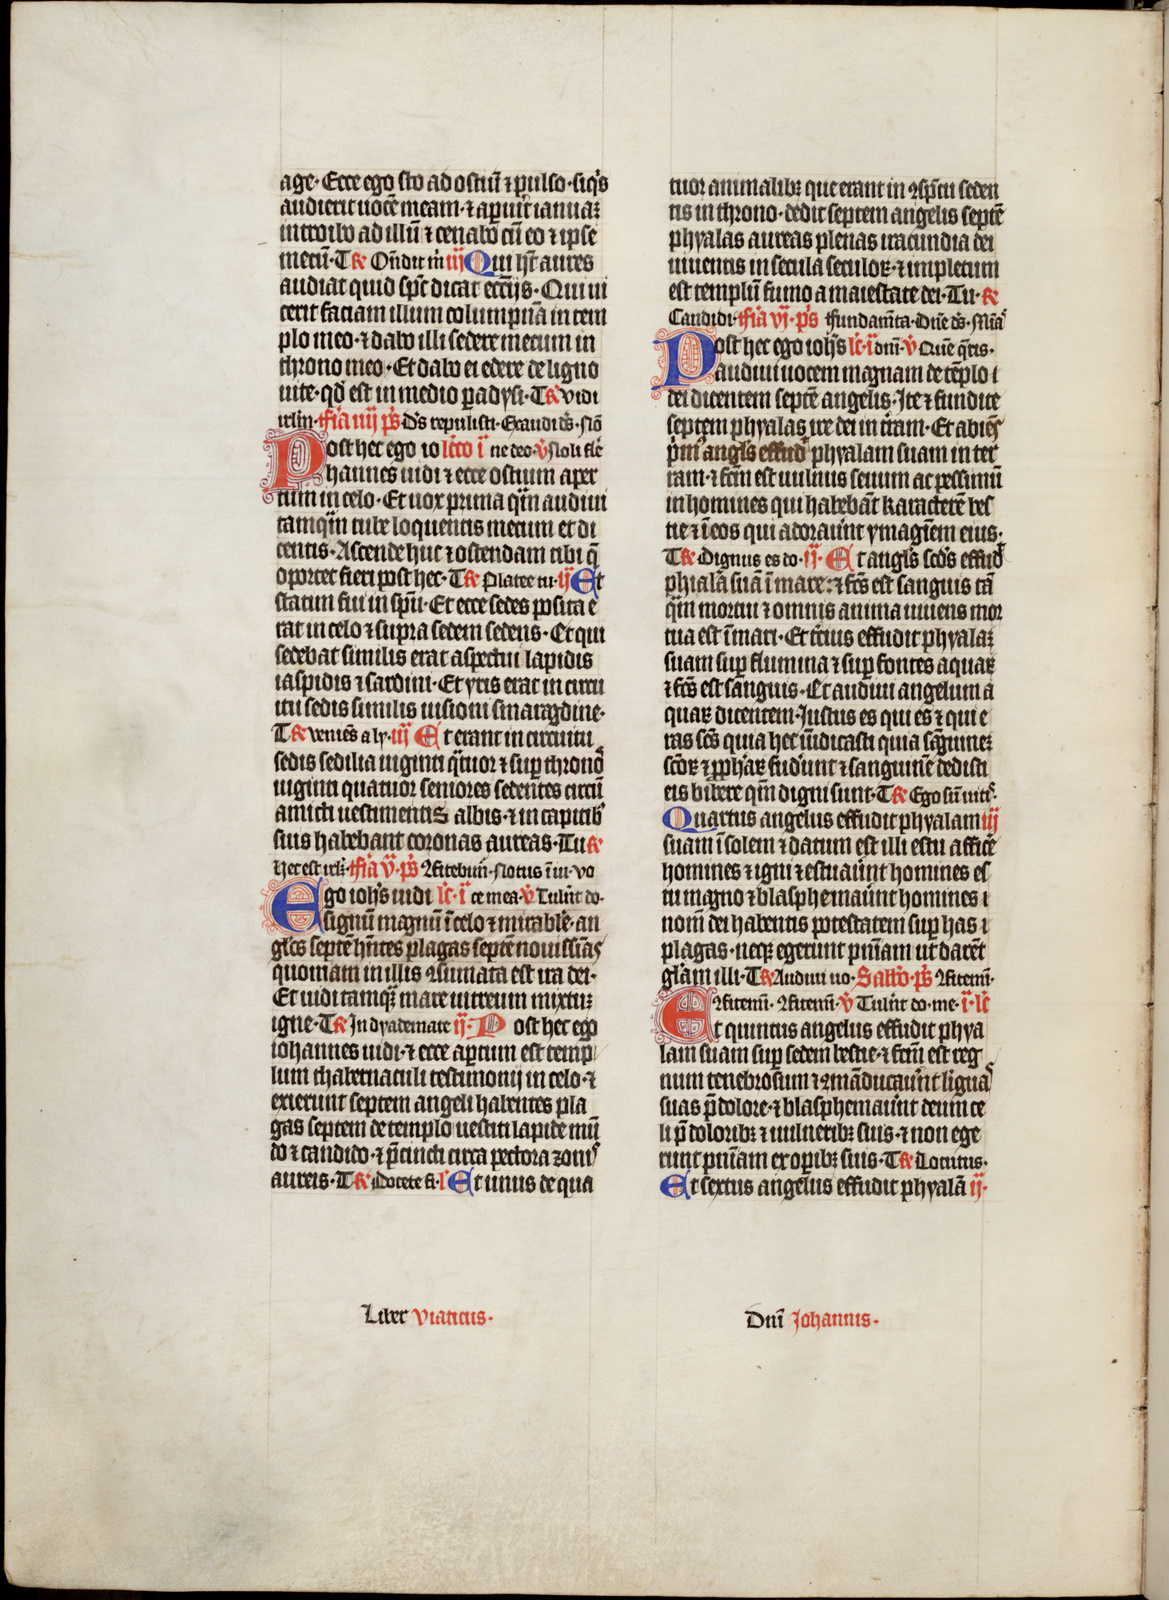 age· Ecce ego sto ad ostiū ⁊ pulso· siq̉s
audierit uocē meam· ⁊ apuit̉ ianuaꝫ
introibo ad illū ⁊ cenabo cū eo ⁊ ipse
mecū· T℟ Oñdit m̄ iij Qui hꝫ aures
audiat quid sp̄c dicat ecc̄ijs· Qui ui
cerit faciam illum columpnā in tem
plo meo· ⁊ dabo illi sedere mecum in
throno meo· Et dabo ei edere de ligno
uite· qd̄ est in medio ꝑadysi· T℟ vidi
irl̄m· ffīa iiij p̄s D̄s repulisti· Exaudi d̄s· Nō
Post hec ego io lc̄co ī ne deo· v̄ Noli
hannes uidi ⁊ ecce ostium aper
tum in celo· Et uox prima qm̄ audiui
tamqm̄ tube loquentis mecum et di
centis· Ascende huc ⁊ ostendam tibi q̄
oportet fieri post hec· T℟ Platee tu· ij Et
statim fui in sp̄u· Et ecce sedes posita e
rat in celo ⁊ supra sedem sedens· Et qui
sedebat similis erat aspectui lapidis
iaspidis ⁊ sardini· Et yris erat in circu
itu sedis similis uisioni smaragdine·
T℟ Veniēs a ly· iij Et erant in circuitu
sedis sedilia uiginti q̄tuor ⁊ suꝑ thronos
uiginti quatuor seniores sedentes circū
amicti uestimentis albis· ⁊ in capitib̉
suis habebant coronas aureas· Tu ℟
Hec est irl̄· ffīa v̄· p̄s ꝯfitebim̄· Notus ī iu· vo
Ego ioh̄s uidi lc̄· ī ce mea· v̄ Tulint do·
signū magnū ī celo ⁊ mirabile· an
gl̄os septē hn̄tes plagas septē nouissīas
quoniam in illis ꝯsumata est ira dei·
Et uidi tamq̄ mare uitreum mixtuꝫ
igne· T℟ In dyademate ij· Post hec ego
iohannes uidi· ⁊ ecce aꝑtum est temp
lum thabernaculi testimonij in celo· ⁊
exierunt septem angeli habentes pla
gas septem de templo uestiti lapide mū
do ⁊ candido· ⁊ p̄cincti circa pectora zonis
aureis· T℟ Docete fi· Et unus de qua
tuor animalibꝫ que erant in ꝯsp̄tu seden
tis in throno· dedit septem angelis septē
phyalas aureas plenas iracundia dei
uiuentis in secula seculoꝝ· ⁊ impletum
est templū fumo a maiestate dei· Tu· ℟
Candidi· ffīa vj· p̄s ffundam̄ta· Dn̄e d̄s· Mīa
Post hec ego ioh̄s lc̄· ī dn̄i· v̄ Qm̄e q̄ris·
audiui uocem magnam de tēplo i
dei dicentem septē angelis· Ite ⁊ fundite
septem phyalas ire dei in t̄ram· Et abiēs
pm̄ angl̄s effud phyalam suam in ter
ram· ⁊ fcm̄ est uulnus seuum ac pessimū
in homines qui habebāt karacterē bes
tie ⁊ ī eos qui adoraūnt ymagīem eius·
T℟ Dignus es do· ij· Et angl̄s scd̄s effud
phialā suā ī mare: ⁊ fc̄s est sanguis tā
qm̄ mortui ⁊ omnis anima uiuens mor
tua est ī mari· Et t̄cius effudit phyalaꝫ
suam suꝑ flumina ⁊ suꝑ fontes aquaꝝ
⁊ fc̄s est sanguis· Et audiui angelum a
quaꝝ dicentem· Iustus es qui es ⁊ qui e
ras sc̄s quia hec iudicasti quia sāguineꝫ
sc̄oꝝ ⁊ ꝓph̄aꝝ fudūnt ⁊ sanguinē dedisti
eis bibere qm̄ digni sunt· T℟ Ego sū uitis·
Quartus angelus effudit phyalam iij
suam ī solem ⁊ datum est illi estu afficē
homines ⁊ igni ⁊ estuaūnt homines es
tu magno ⁊ blasphemaūnt homines i
nom̄ dei habentis potestatem suꝑ has i
plagas· neqꝫ egerunt pn̄iam ut darēt
gl̄am illi· T℟ Audiui uo· Sabb̄o· p̄s ꝯfitem̄·
ꝯfitem̄· ꝯfitem̄· v̄ Tulint do· me· ī· lc̄
Et quintus angelus effudit phya
lam suam suꝑ sedem bestie· ⁊ fcm̄ est reg
num tenebrosum ⁊ ꝯmāducaūnt liguas
suas p̄ dolore· ⁊ blasphemaūnt deum ce
li p̄ doloribꝫ ⁊ uulneribꝫ suis· ⁊ non ege
runt pn̄iam ex oꝑibꝫ suis· T℟ Locutus·
Et sextus angelus effudit phyalā ij·
Liber viaticus·
Dn̄i Johannis·